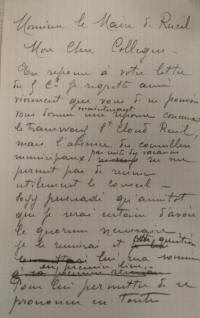 Monsieur le Maire de Rueil
Mon Cher Collègue.
En réponse à votre lettre
du 5 Ct je regrette aussi
vivement que vous de ne pouvoir
maintenant
vous donner une réponse concernant
le tramway St Cloud Rueil,
mais l'absence des conseillers
par suite des vacances
municipaux ne me
permet pas de réunir
utilement le conseil -
Soyez persuadé qu'aussitôt
que je serai certain d'avoir
le quorum nécessaire
je le réunirai et cette question
lui sera soumise
en premier lieu
Pour lui permettre de se
prononcer en toute